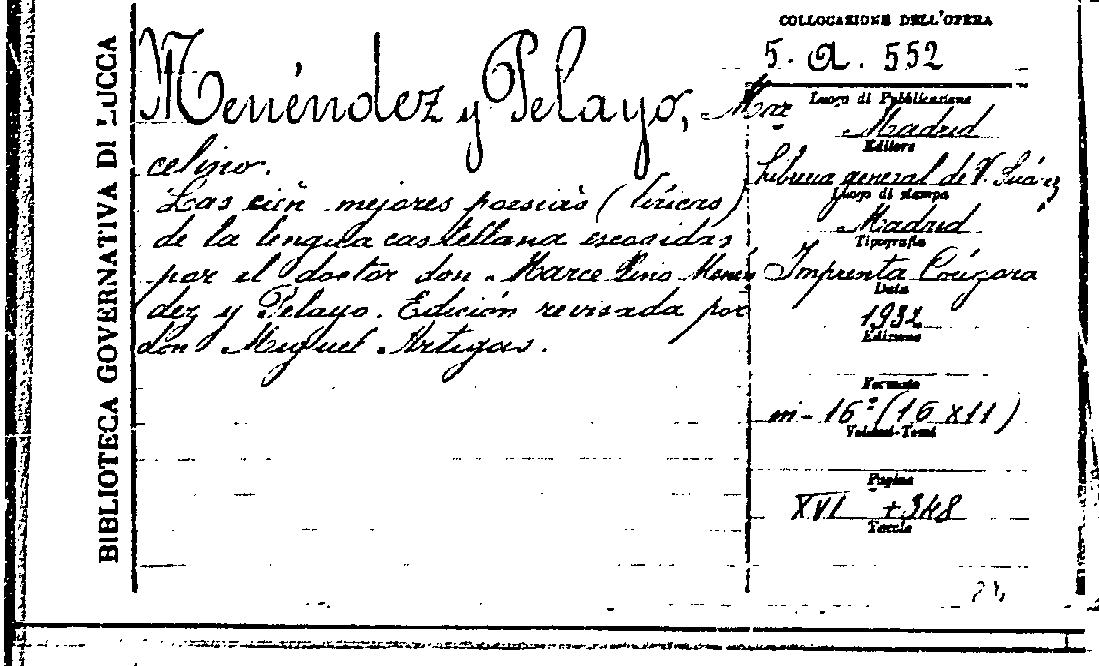 BIBLIOTECA GOVERNATIVA DI LUCCA
Menéndez y Pelayo, Mar
celino.
Las cién mejores poesiàs (líricas)
de la lengua castellana escogidas
por el doctor don Marcelino Menén
dez y Pelayo. Edición revisada por
don Miguel Artigas.
COLLOCAZIONE DELL'OPERA
5. a. 552
Luogo di Pubblicazione
Madrid
Editore
Libreria general de V. Suárez
Luogo di stampa
Madrid
Tipografia
Imprenta Góngora
Data
1932
Edizione
Formato
in-16º (16 x 11)
Volumi-Tomi
Pagine
XVI + 348
Tavole